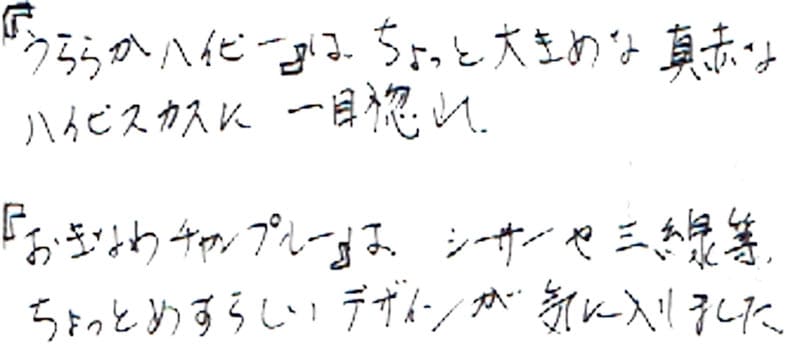 『うららかハイビー』は、ちょっと大きめな真赤な
ハイビスカスに一目惚れ。
『おきなわチャンプルー』は、シーサーや三線等、
ちょっとめずらしいデザインが気に入りました